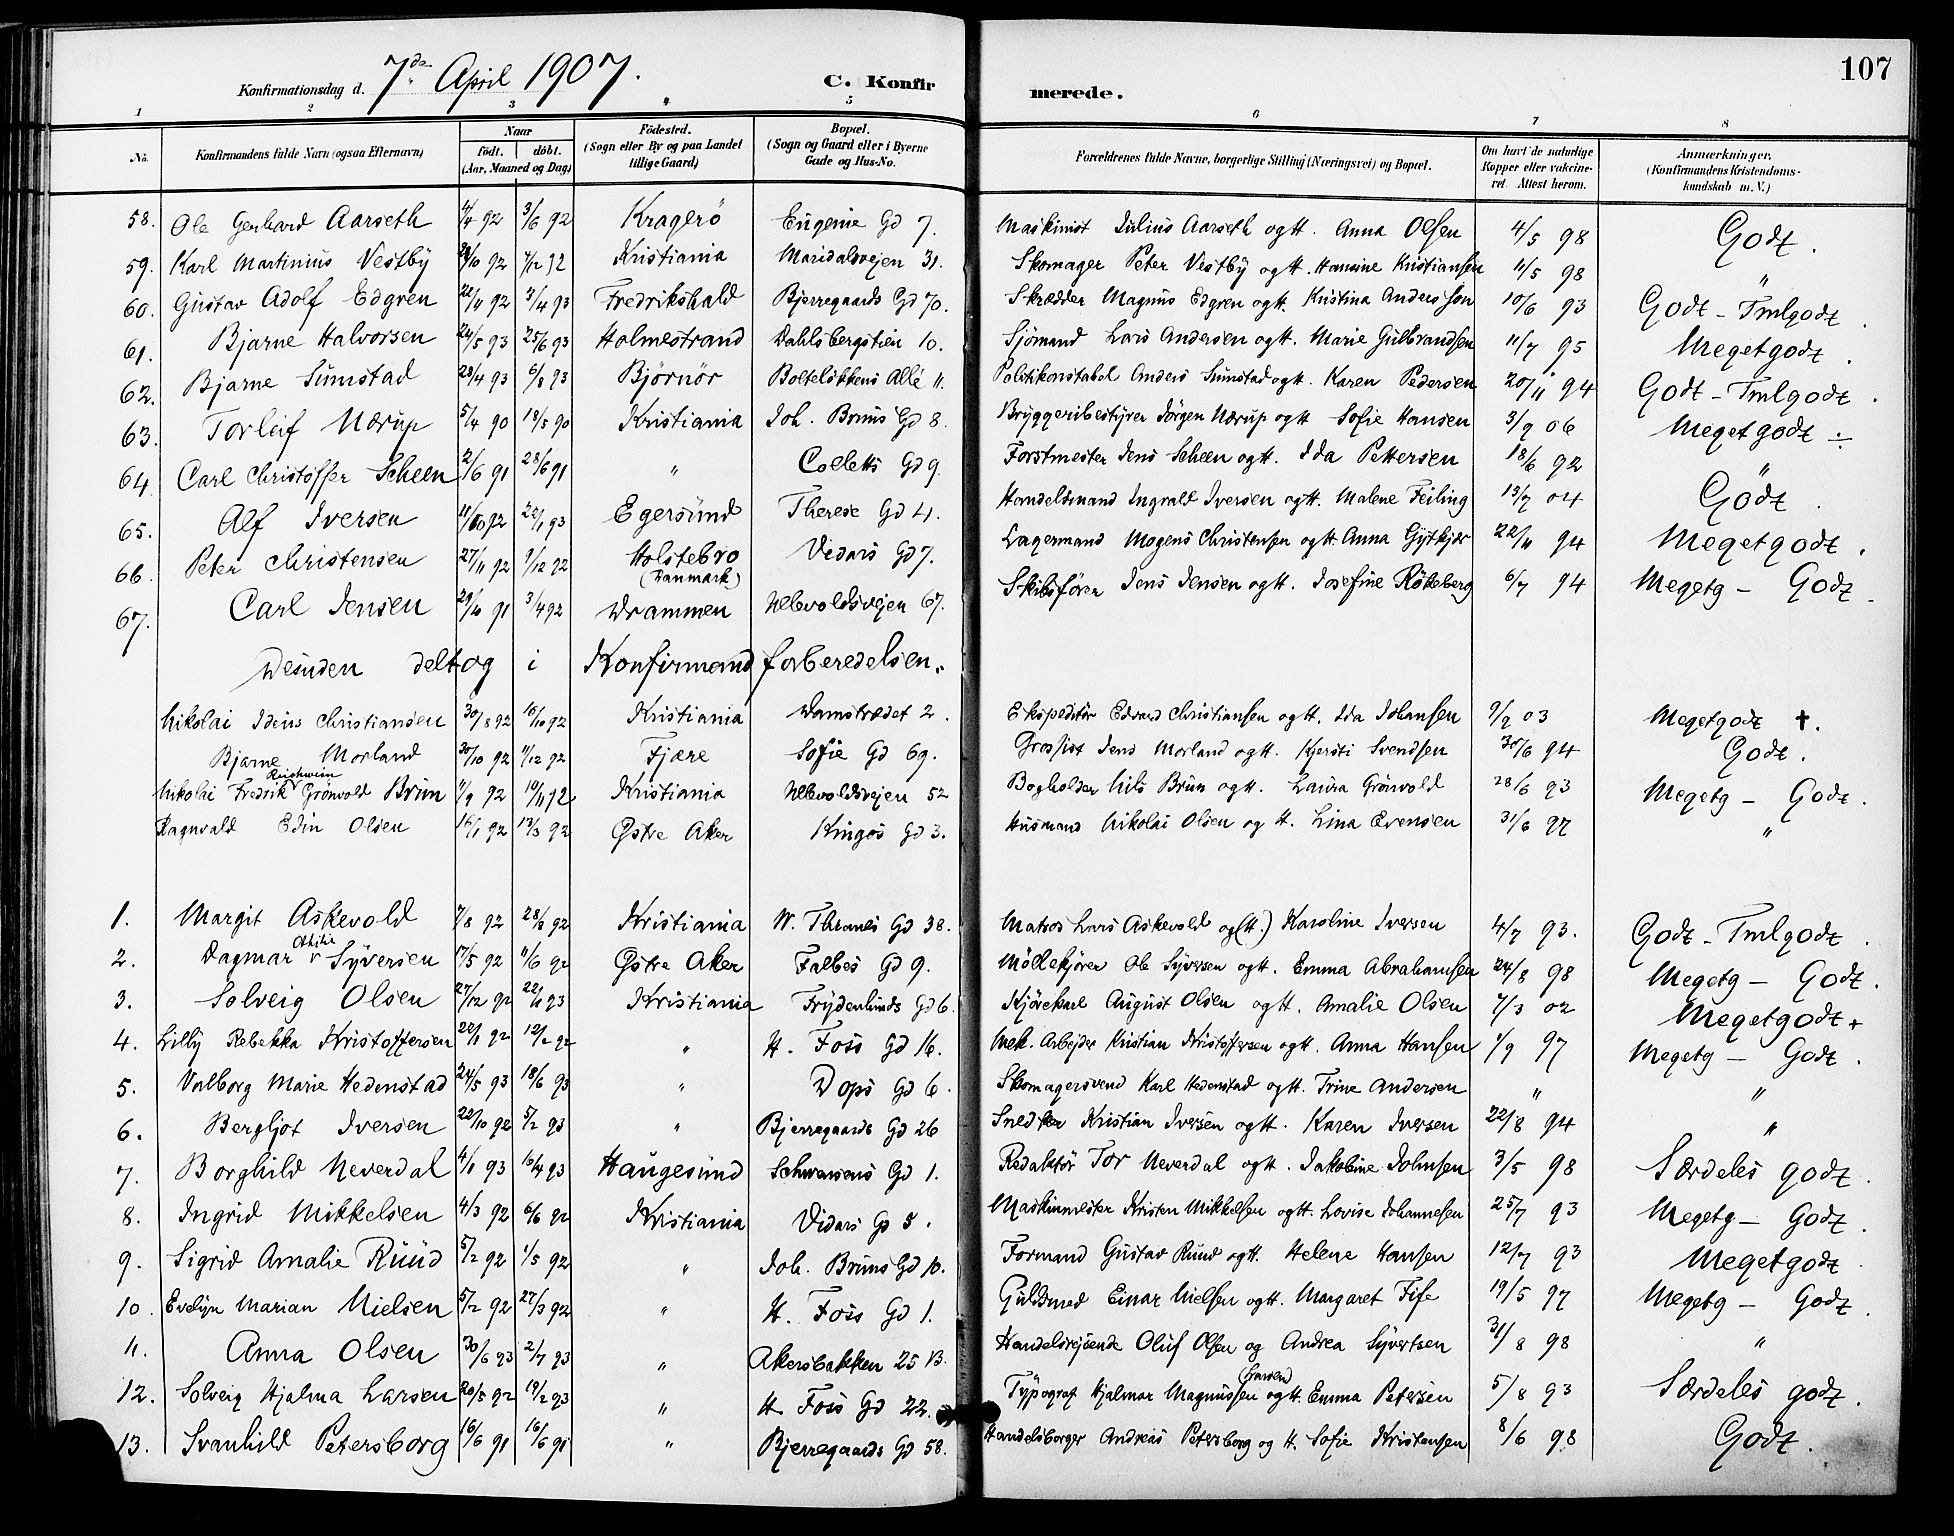 107
Konfirmationsdag d. 7de April 1907.
C. Konfirmerede.
1 2 3 4 5 6 7 8
No. | Konfirmandens fulde Navn (ogsaa Efternavn) | Naar födt. döbt. (Aar, Maaned og Dag) | Födested. (Sogn eller By og paa Landet tillige Gaard) | Bopæl. (Sogn og Gaard eller i Byerne Gade og Hus-No. | Forældrenes fulde Navne, borgerlige Stilling (Næringsvei) og Bopæl. | Om havt de naturlige Kopper eller vakcineret. Attest herom. | Anmærkninger. (Konfirmandens Kristendomskundskab m. V.)
58. Ole Gerhard Aarseth 4/4 92 3/6 92 Kragerö Eugenie Gd 7. Maskinist Julius Aarseth og H. Anna Olsen 4/5 98 Godt.
59. Karl Martinius Vestby 92 7/12 92 Kristiania Maridalsvejen 31. Skomager Peter Vestby og H. Hansine Kristiansen 11/5 98 "
60. Gustav Adolf Edgren 22/11 92 3/4 93 Fredrikshald Bjerregaards Gd 70. Skrædder Magnus Edgren og H. Kristina Andersson 10/6 93 Godt - Tmlgodt.
61. Bjarne Halvorsen 24/5 93 25/6 93 Holmestrand Dahlsbergstien 10. Sjömand Lars Andersen og H. Marie Gulbrandsen 11/7 95 Megetgodt.
62. Bjarne Sumstad 23/4 93 6/8 93 Björnör Boltelökkens Allé 11. Politikonstabel Anders Sumstad og H. Karen Pedersen 20/11 94 Godt - Tmlgodt.
63. Torleif Nærup 5/4 90 18/5 90 Kristiania Joh. Bruns Gd 8. Bryggeribestyrer Jörgen Nærup og H Sofie Hansen 3/9 06 Megetgodt ÷
64. Carl Christoffer Scheen 2/6 91 28/6 91 " Colletts Gd 9. Forstmester Jens Scheen og H. Ida Pettersen 18/6 92 "
65. Alf Iversen 11/10 92 22/1 93 Egersund Therese Gd 4. Handelsmand Ingvald Iversen og H. Malene Feiling 13/7 04 Godt.
66. Peter Christensen 27/11 92 9/12 92 Holstebro (Danmark) Vidars Gd 7. Lagermand Mogens Christensen og H. Anna Gytkjær 22/11 94 Megetgodt.
67. Carl Jensen 29/10 91 3/4 92 Drammen Ullevoldsvejen 67. Skibsförer Jens Jensen og H. Josefine Rökeberg 6/7 94 Megetg - Godt.
Desuden deltog i Konfirmandforberedelsen.
Nikolai Idenis Christiansen 30/8 92 16/10 92 Kristiania Damstrædet 2. Ekspeditör Edvard Christiansen og H. Ida Johansen 9/9 03 Megetgodt †.
Bjarne Morland 30/10 92 11/12 92 Fjære Sofie Gd 69. Grossist Jens Morland og H. Kjersti Svendsen 30/6 94 Godt.
Nikolai Fredrik Grönvold Brun 11/9 92 19/11 92 Kristiania Ullevoldsvejen 52 Bogholder Nils Brun og H. Laura Grönvold 28/6 93 Megetg - Godt.
Ragnvald Edin Olsen 16/1 92 13/3 92 Östre Aker Kingos Gd 3. Husmand Nikolai Olsen og H. Lina Evensen 31/6 97 "
1. Margit Askevold 7/8 92 28/8 92 Kristiania W. Thranes Gd 38. Matros Lars Askevold og (H.) Karoline Iversen 4/7 93. Godt - Tmlgodt.
2. Dagmar Othilie Syversen 17/5 92 11/6 92 Östre Aker Falbes Gd 9. Möllekjörer Ole Syversen og H. Emma Abrahamsen 24/8 98 Megetg - Godt.
3. Solveig Olsen 27/12 92 93 Kristiania Frydenlunds Gd 6. Kjörekarl August Olsen og H. Amalie Olsen 7/3 02 Megetgodt +
4. Lilly Rebekka Kristoffersen 22/1 92 12/2 92 " H. Foss Gd 16. Mek. Arbejder Kristian Kristoffersen og H. Anna Hansen 1/9 97 Megetg - Godt.
5. Valborg Marie Hedenstad 24/5 93 18/6 93 " Dops Gd 6. Skomagersvend Karl Hedenstad og H. Trine Andersen " "
6. Bergljot Iversen 22/10 92 5/2 93 " Bjerregaards Gd 26 Snedker Kristian Iversen og H. Karen Iversen 22/8 94 "
7. Borghild Neverdal 4/1 93 16/4 93 Haugesund Schwensens Gd 1. Redaktör Tor Neverdal og H. Jakobine Johnsen 3/5 98 Særdeles godt.
8. Ingrid Mikkelsen 4/3 92 6/6 92 Kristiania Vidars Gd 5. Maskinmester Kristen Mikkelsen og H. Lovise Johannesen 25/7 93 Megetg - Godt.
9. Sigrid Amalie Ruud 5/2 92 1/5 92 " Joh. Bruns Gd 10. Formand Gustav Ruud og H. Helene Hansen 12/7 93 Megetgodt.
10. Evelyn Marian Nielsen 5/2 92 27/3 92 " H. Foss Gd 1. Guldsmed Einar Nielsen og H. Margaret Fife 19/5 97 Megetg - Godt.
11. Anna Olsen 30/6 93 2/7 93 " Akersbakken 25 B. Handelsrejsende Oluf Olsen og Andrea Syvertsen 31/8 98 "
12. Solveig Hjalma Larsen 20/5 92 19/2 93 " H. Foss Gd 22. Typograf Hjalmar Magnussen (Larsen) og H. Emma Petersen 5/8 93 Særdeles godt.
13. Svanhild Petersborg 16/6 91 16/6 91 " Bjerregaards Gd 58. Handelsborger Andreas Petersborg og H. Sofie Kristensen 8/6 98 Godt.